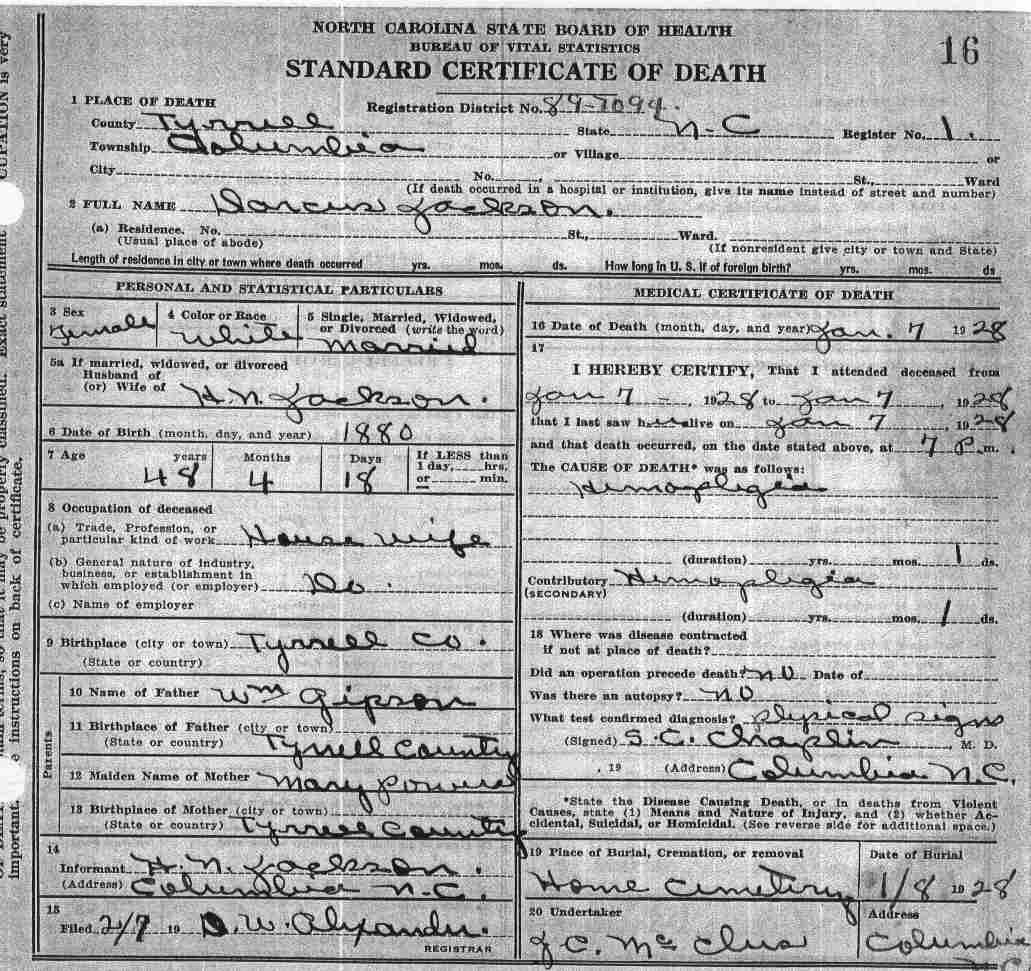 NORTH CAROLINA STATE BOARD OF HEALTH
BUREAU OF VITAL STATISTICS
STANDARD CERTIFICATE OF DEATH
16
1 PLACE OF DEATH
Registration District No. 89-7094.
County Tyrrell State N-C Register No. 1.
Township Columbia or Village or
City No. , St., Ward
(If death occurred in a hospital or institution, give its name instead of street and number)
2 FULL NAME Darcus Jackson.
(a) Residence. No. St., Ward.
(Usual place of abode) (If nonresident give city or town and State)
Length of residence in city or town where death occurred yrs. mos. ds. How long in U. S. if of foreign birth? yrs. mos. ds
PERSONAL AND STATISTICAL PARTICULARS
3 Sex
Female
4 Color or Race
White
5 Single, Married, Widowed,
or Divorced (write the word)
Married
5a If married, widowed, or divorced
Husband of
(or) Wife of H.N. Jackson.
6 Date of Birth (month, day, and year) 1880
7 Age years Months Days If LESS than
1 day, hrs.
48 4 18 or min.
8 Occupation of deceased
(a) Trade, Profession, or
particular kind of work House wife
(b) General nature of industry,
business, or establishment in
which employed (or employer) Do.
(c) Name of employer
9 Birthplace (city or town) Tyrrell Co.
(State or country)
Parents
10 Name of Father Wm Gipson
11 Birthplace of Father (city or town)
(State or country) Tyrrell County
12 Maiden Name of Mother Mary
13 Birthplace of Mother (city or town)
(State or country) Tyrrell County
14
Informant H.N. Jackson.
(Address) Columbia N.C.
15
Filed 2/7 19 W. Alexander.
REGISTRAR
MEDICAL CERTIFICATE OF DEATH
16 Date of Death (month, day, and year) Jan. 7 1928
17
I HEREBY CERTIFY, That I attended deceased from
Jan 7 - 1928 to Jan 7 , 1928
that I last saw her alive on Jan 7 , 1928
and that death occurred, on the date stated above, at 7 P.m.
The CAUSE OF DEATH* was as follows:
Hemopligia
(duration) yrs. mos. 1 ds.
Contributory Hemopligia
(SECONDARY)
(duration) yrs. mos. 1 ds.
18 Where was disease contracted
if not at place of death?
Did an operation precede death? No Date of
Was there an autopsy? No
What test confirmed diagnosis? Physical signs
(Signed) S.C. Chaplin, M. D.
, 19 (Address) Columbia N.C.
*State the Disease Causing Death, or in deaths from Violent
Causes, state (1) Means and Nature of Injury, and (2) whether Ac-
cidental, Suicidal, or Homicidal. (See reverse side for additional space.)
19 Place of Burial, Cremation, or removal
Home Cemetery
Date of Burial
1/8 1928
20 Undertaker
J C. Mc Clus
Address
Columbia
N C
important.
e instructions on back of certificate.